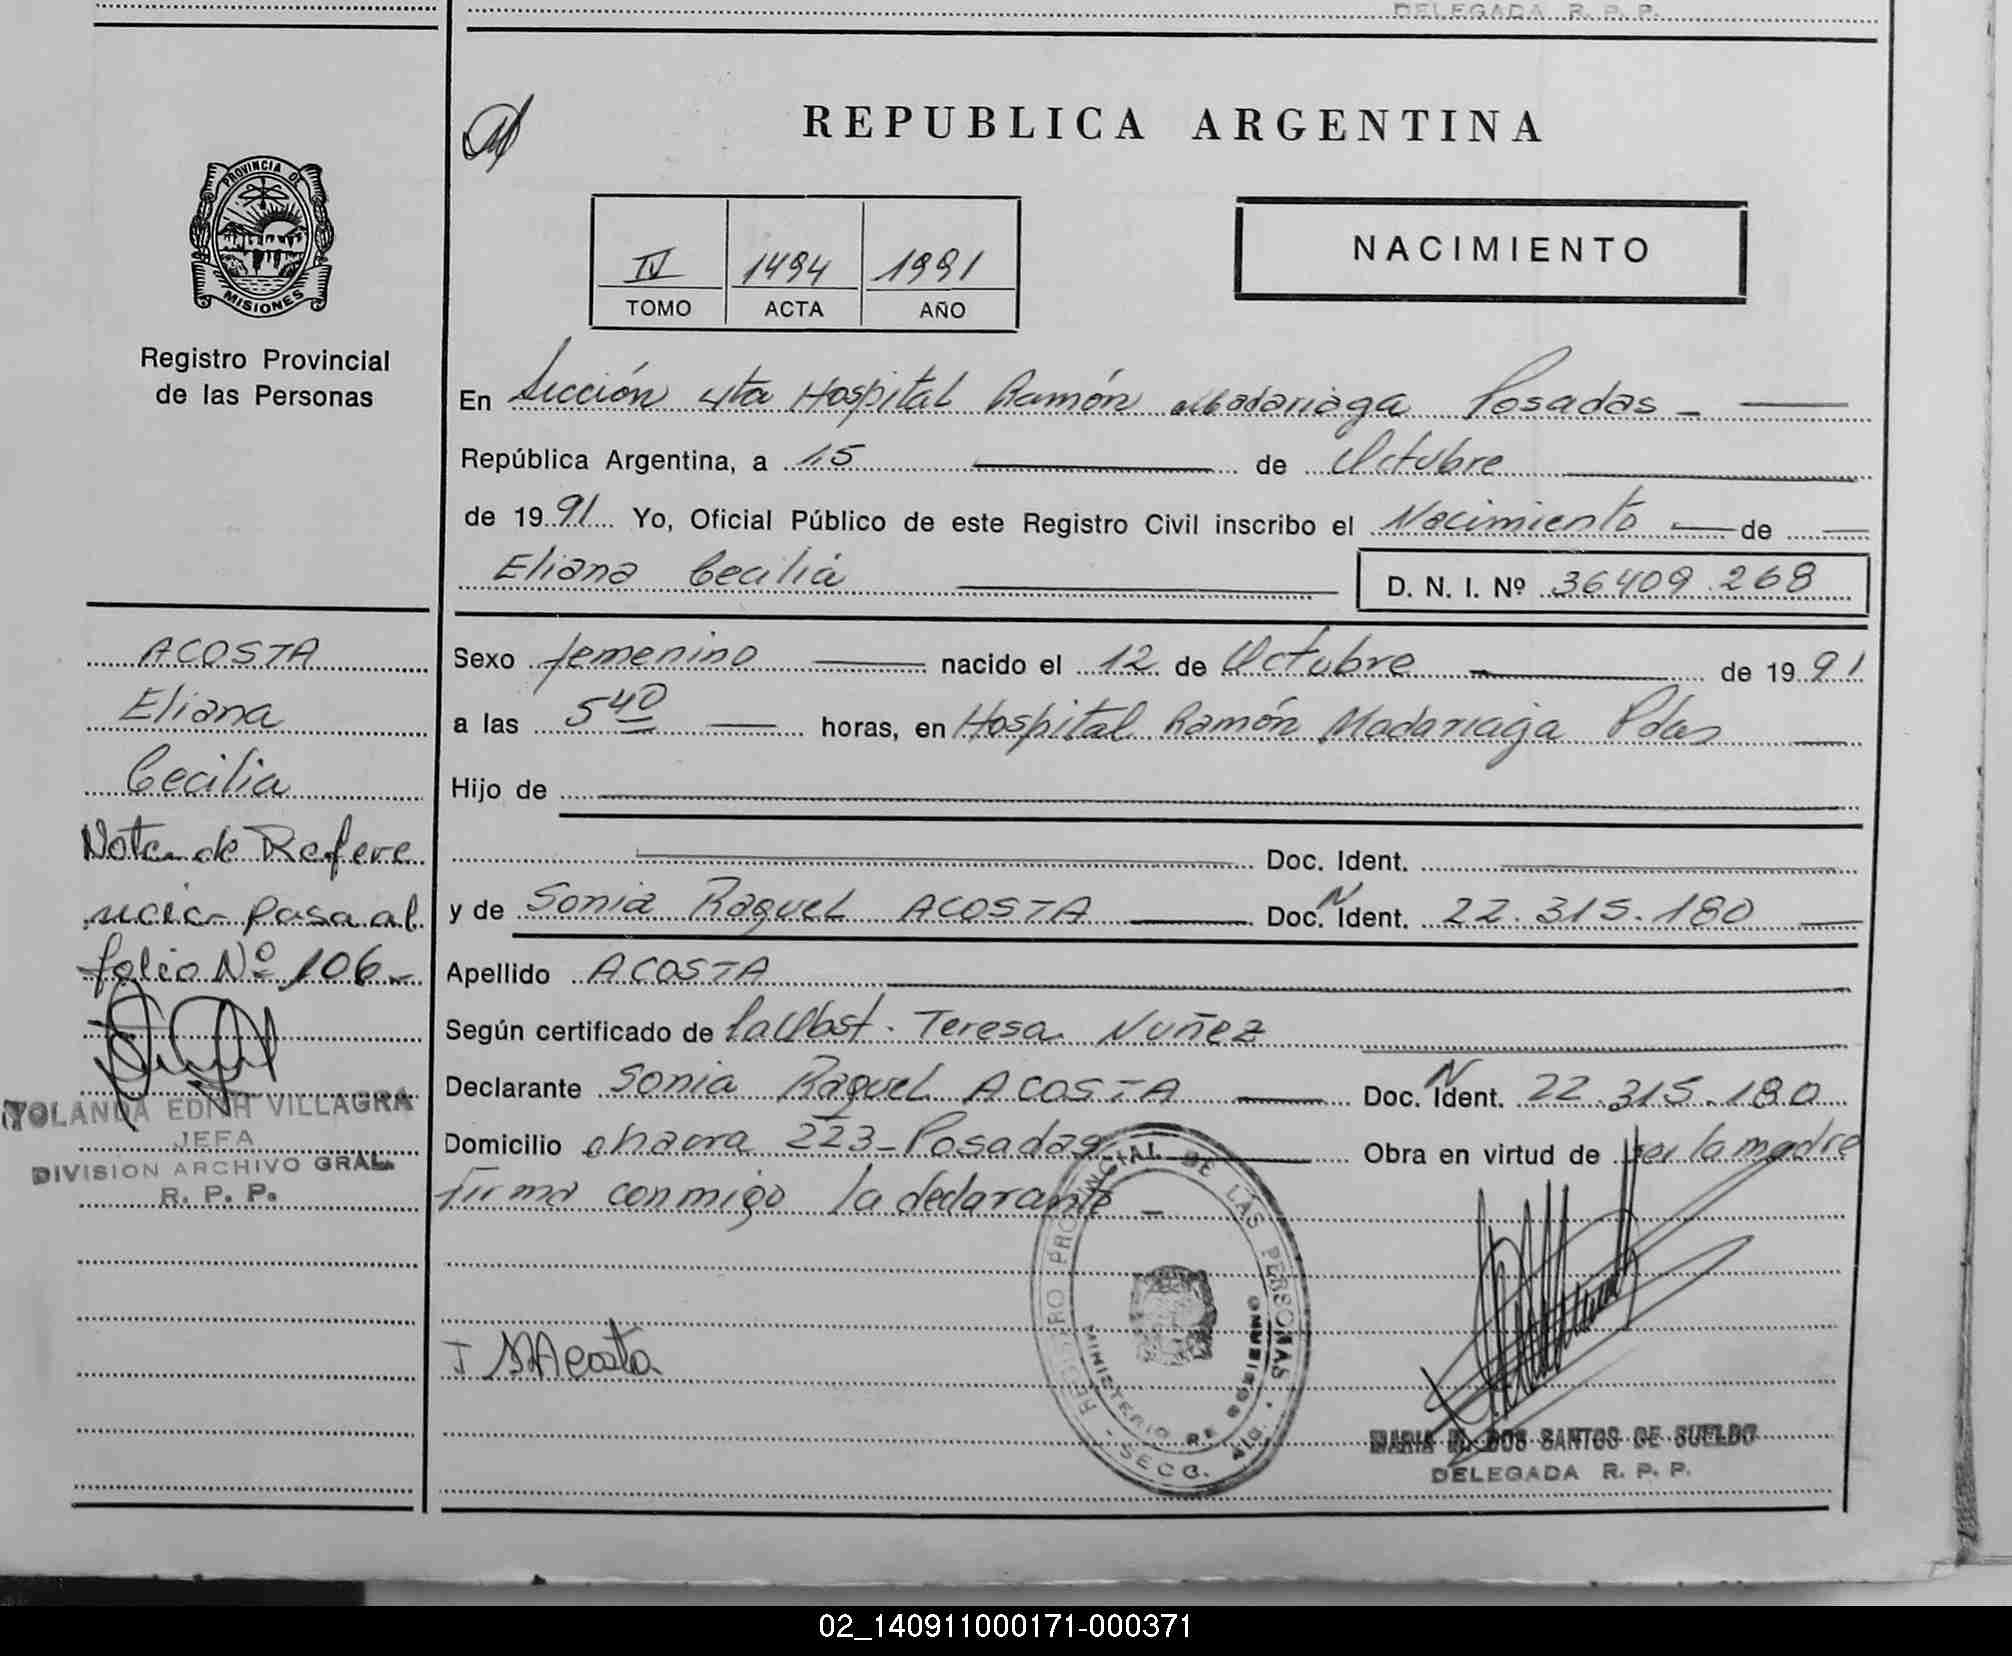 DELEGADA R. P. P.
REPUBLICA ARGENTINA
PROVINCIA DE
MISIONES
Registro Provincial
de las Personas
IV 1494 1991
TOMO ACTA AÑO
NACIMIENTO
En Sección 4ta Hospital Ramón Madariaga Posadas -
República Argentina, a 15 de Octubre
de 1991 Yo, Oficial Público de este Registro Civil inscribo el Nacimiento de
Eliana Cecilia D. N. I. Nº 36409.268
Sexo femenino nacido el 12 de Octubre de 1991
a las 5 40 horas, en Hospital Ramón Madariaga Pdas
Hijo de
Doc. Ident.
y de Sonia Raquel ACOSTA Doc. N Ident. 22.315.180
Apellido ACOSTA
Según certificado de la Obst. Teresa Nuñez
Declarante Sonia Raquel ACOSTA Doc. N Ident. 22.315.180
Domicilio 223 - Posadas Obra en virtud de ser la madre
Firma conmigo la declarante -
ACOSTA
Eliana
Cecilia
Nota de Refere
ncia pasa al
folio Nº 106 -
YOLANDA EDITH VILLAGRA
JEFA
DIVISION ARCHIVO GRAL.
R. P. P.
SRAcosta
REGISTRO PROVINCIAL DE LAS PERSONAS
MINISTERIO DE GOBIERNO
MARIA DOS SANTOS DE SUELDO
DELEGADA R. P. P.
02_140911000171-000371